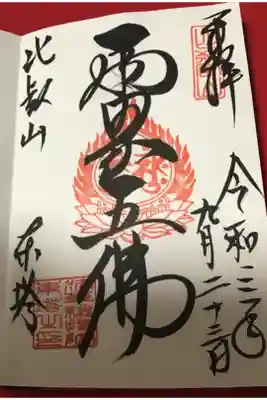 奉拝
令和三年
九月二十三日
両界五佛
比叡山
東塔